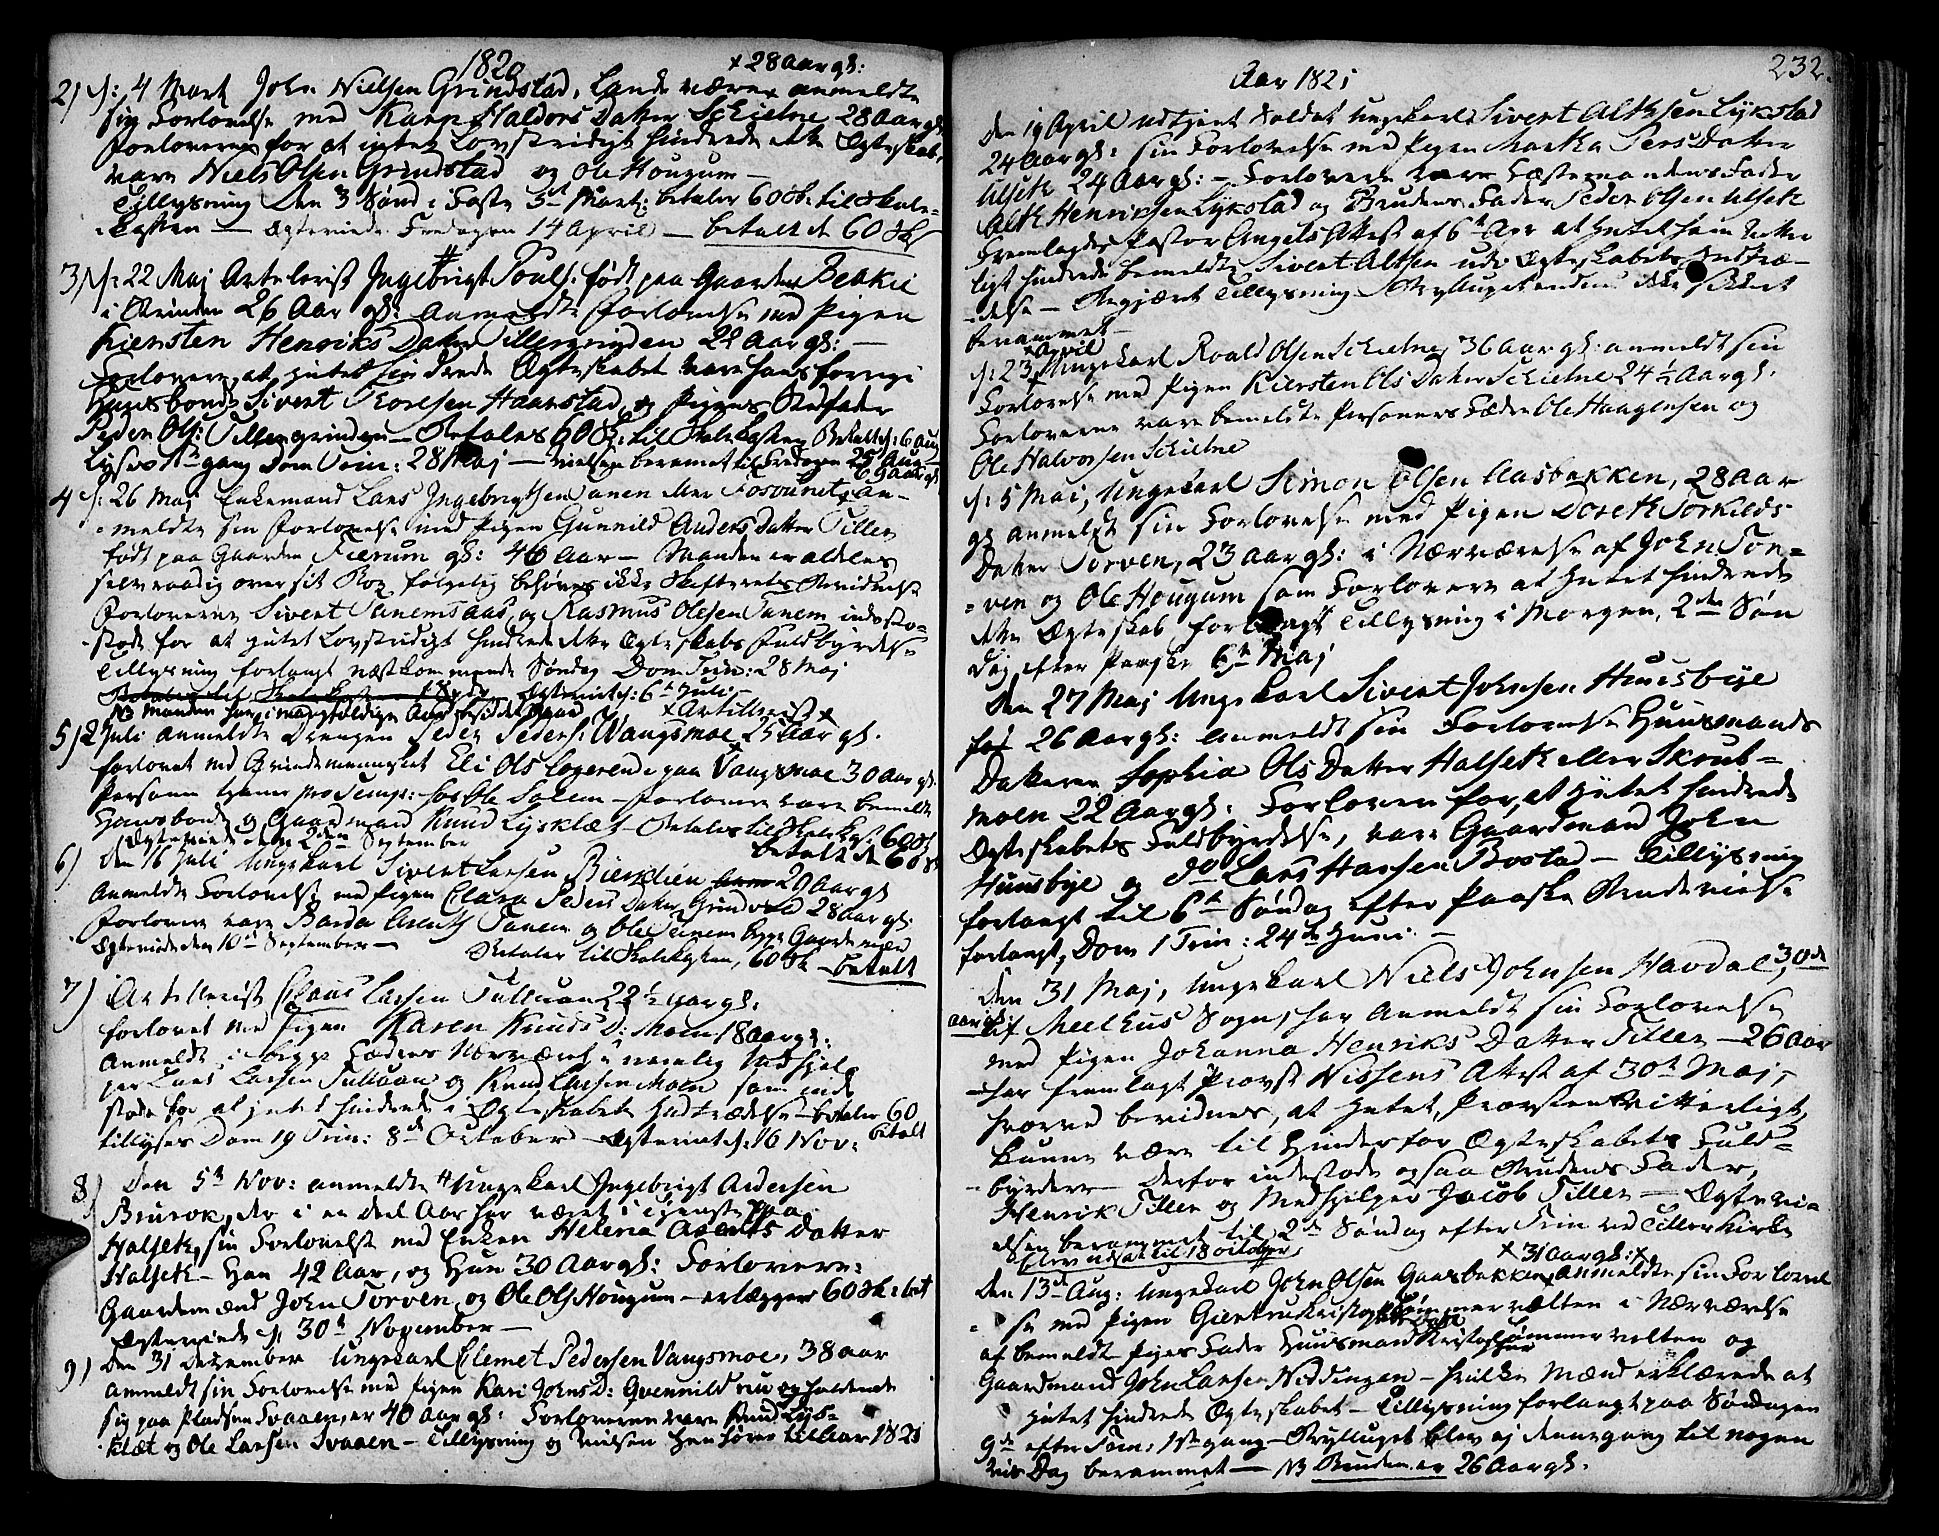 1820
× 28 Aar gl:
2) d: 4 Mart John Nielsen Grindstad, Landeværer anmeldte
sin Forlovelse med Karen Haldors Datter Schielne 28 Aar gl:
Forloverne for at intet Lovstridigt hindrede dette Ægteskab,
vare Niels Olsen Grindstad og Ole Hougum —
Tillysning den 3 Sønd: i Faste 5te Mart: betaler 60 sk: til Skole-
-kassen — Ægteviede Fredagen 14 April — betalt d 60 sk
3) d: 22 Maj Artelerist Ingebrigt Pouls: født paa Gaarden Bekkie
i Strinden 26 Aar gl: anmeldte Forlovelse med Pigen
Kiersten Henriks Datter Tillergrinden 22 Aar gl: —
Forlovere, at intet hindrede Ægteskabet vare hans forrige
Huusbonde Sivert Thoresen Haarstad, og Pigens Stedfader
Peder Ols: Tillergrinden — Betales 60 sk: til Skolekassen Betalt d: 6 Aug
Lyses 1te gang Dom Trin: 28 Maj — Vielsen berammet til Fredagen 25 Aug
69 aar gl
4 d: 26 Maj Enkemand Lars Ingebrigtsen Tanem eller Fosvunet, an-
-meldte sin Forlovelse med Pigen Gunnild Anders Datter Tiller
født paa Gaarden Fierum gl: 46 Aar — Manden er aldeles
selvraadig over sit Boe følgelig behøves ikke Skifterets Bevidnelse
Forloverne Sivert Tanemsaas, og Rasmus Olesen Tanem indesto-
-stode for at intet Lovstridigt hindrede dette Ægteskabs Fuldbyrdelse
Tillysning forlangt næstkommende Søndag Dom Trin: 28 Maj
Ægteviet d: 6te Juli —
NB Manden har i mangfoldige Aar
× Artillerist ×
5) 2 Juli anmeldte Drengen Peder Peders: Vangsmoe 25 Aar gl.
forlovet med Qvindemennesket Eli Ols Logerende paa Vangsmoe 30 aar gl.
Personen tjener pro Temp: hos Ole Solem — Forlovere vare bemeldte
Huusbonde og Gaardmand Knud Lysklæt — Betales til Skolekas: 60 sk
Ægteviede den 2den September betalt de 60 sk
6) Den 16 Juli Ungekarl Sivert Larsen Bierklien 29 Aar gl
Anmeldte Forlovelse med Pigen Clara Peders Datter Grindvold 28 aar gl:
Forlovere vare Barda Arents Tanem og Ole Tanem begge Gaardemænd
Ægteviede den 10de September — Betaler til Skolekassen, 60 sk — betalt
7) Artillerist Claus Larsen Tulluan 22 ½ Aar gl.
forlovet med Pigen Karen Knuds D: Moen 18 aar gl:
Anmeldt i begge Fædres Nærværelse nemlig Medhjel-
per Lars Larsen Tulluan og Knud Larsen Moen som inde
stode for at intet hindrede i Ægteskabet Indtrædelse — betaler 60
tillyses Dom 19 Trin: 8de October — Ægteviet d: 16 Nov: betalt
8) Den 5te Nov: anmeldte Ungekarl Ingebrigt Andersen
Brurok, der i en deel Aar har været i tjeneste paa
Halsetk, sin Forlovelse med Enken Helena Arents Datter
Halsetk — Han 42 Aar, og Hun 30 Aar gl: Forlovere:
Gaardmænd John Torven og Ole Ols Hougum — erlægger 60 sk: bet
Ægteviede d. 30te November —
9) Den 31 December Ungekarl Clemet Pedersen Vangsmoe, 38 aar
Anmeldt sin Forlovelse med Pigen Kari Johns D: Qvennild nu opholdende
sig paa Pladsen Svaaen, er 40 Aar gl: Forloverne vare Knud Lys-
klæt og Ole Larsen Svaaen — Tillysning og Vielsen henføres til Aar 1821
232.
Aar 1821
Den 19 April udtjent Soldat Ungekarl Sivert Altksen Lykstad
24 Aar gl: sin Forlovelse med Pigen Martka Pers Datter
Ulsetk 24 Aar gl: — Forlovere vare Fæstemandens Fader
Altk Henriksen Lykstad og Brudens Fader Peder Olsen Ulsetk
Fremlagde Pastor Angels Attest af 6te Apr at intet ham vitter
ligt hindrede bemeldte Sivert Altksen udi Ægteskabets Indtræ-
-delse — Begjæret Tillysning — Bryllupet endnu ikke sikkert
berammet —
d: 23 April Ungekarl Roald Olsen Schielne, 36 Aar gl. anmeldt sin
Forlovelse med Pigen Kiersten Ols Datter Schielne 24 ½ Aar gl.
Forloverne vare bemeldte Personers Fædre Ole Haagensen og
Ole Halvorsen Schielne
d: 5 Maj, Ungekarl Simon Olsen Aasbakken, 28 Aar
gl anmeldt sin Forlovelse med Pigen Doretk Torkilds-
Datter Torven, 23 Aar gl: i Nærværelse af John Tor-
-ven og Ole Hougum som Forlovere at intet hindrede
dette Ægteskab, forlangt Tillysning i Morgen, 2den Søn
dag efter Paaske 6te Maj
Den 27 Maj Ungekarl Sivert Johnsen Huusbye
26 Aar gl: Anmeldt sin Forlovelse Huusmands
Datteren Sophia Ols Datter Halsetk eller Skrub-
moen 22 Aar gl. Forlovere for, at intet hindrede
Ægteskabets Fuldbyrdelse, vare Gaardmand John
Huusbye og do Lars Hansen Bostad — Tillysning
forlangt til 6te Søndag efter Paaske Brudevielse
forlangt, Dom 1 Trin: 24de Juni —
Den 31 Maj, Ungekarl Niels Johnsen Havdal, 30de
aar gl: af Meelhus Sogn, har Anmeldt sin Forlovelse
med Pigen Johanna Henriks Datter Tiller — 26 Aar
— har fremlagt Provst Nissens Attest af 30te Maj,
hvorved bevidnes, at intet, Præsten vitterligt,
kunne være til Hinder for Ægteskabets Fuld-
-byrdere — Derfor indestode ogsaa Brudens Fader,
Henrik Tiller og Medhjelper Jacob Tiller — Ægtevi-
elsen berammet til 2de Søndag efter Trin ved Tiller Kirke
blev udsat til 18 October
× 31 Aar gl: ×
Den 13de Aug: Ungekarl John Olsen Gaasbakken, Anmeldte sin Forlovel
-se med Pigen Giertru Kristophers Datter Tømmervolten i Nærværelse
af bemeldte Piges Fader Huusmand Kristopher Tømmervolten og
Gaardmand John Larsen Niddingen — hvilke Mænd erklærede at
intet hindrede Ægteskabet — Tillysning forlangt paa Søndagen
9de efter Trin: 1te gang — Bryllupet blev ej denne gang til nogen
vis Dag berammet — NB Bruden er 26 Aar gl.